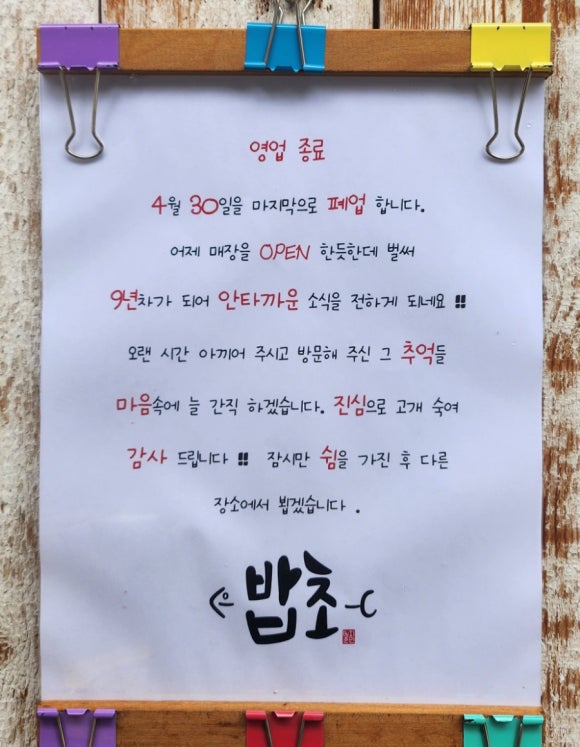 영업 종료
4월 30일을 마지막으로 폐업 합니다.
어제 매장을 OPEN 한듯한데 벌써
9년차가 되어 안타까운 소식을 전하게 되네요 !!
오랜 시간 아끼어 주시고 방문해 주신 그 추억들
마음속에 늘 간직 하겠습니다. 진심으로 고개 숙여
감사 드립니다 !! 잠시만 쉼을 가진 후 다른
장소에서 뵙겠습니다 .
밥초